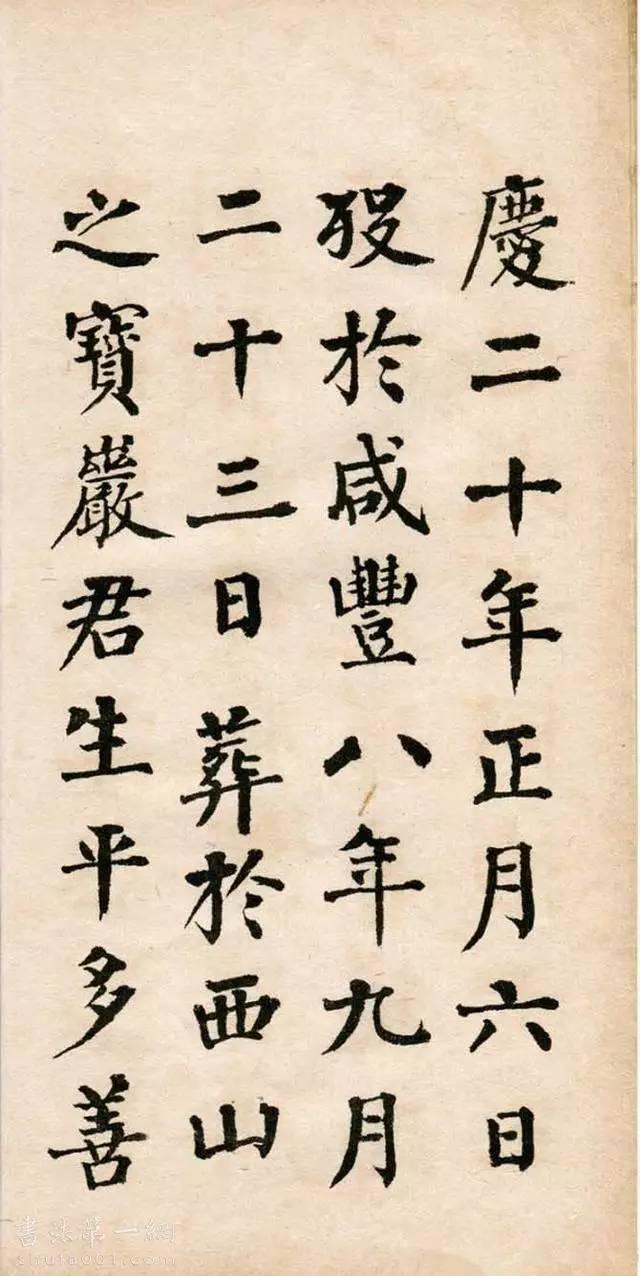 慶二十年正月六日
歿於咸豐八年九月
二十三日葬於西山
之寶巖君生平多善
書法第一網
shufa001.com